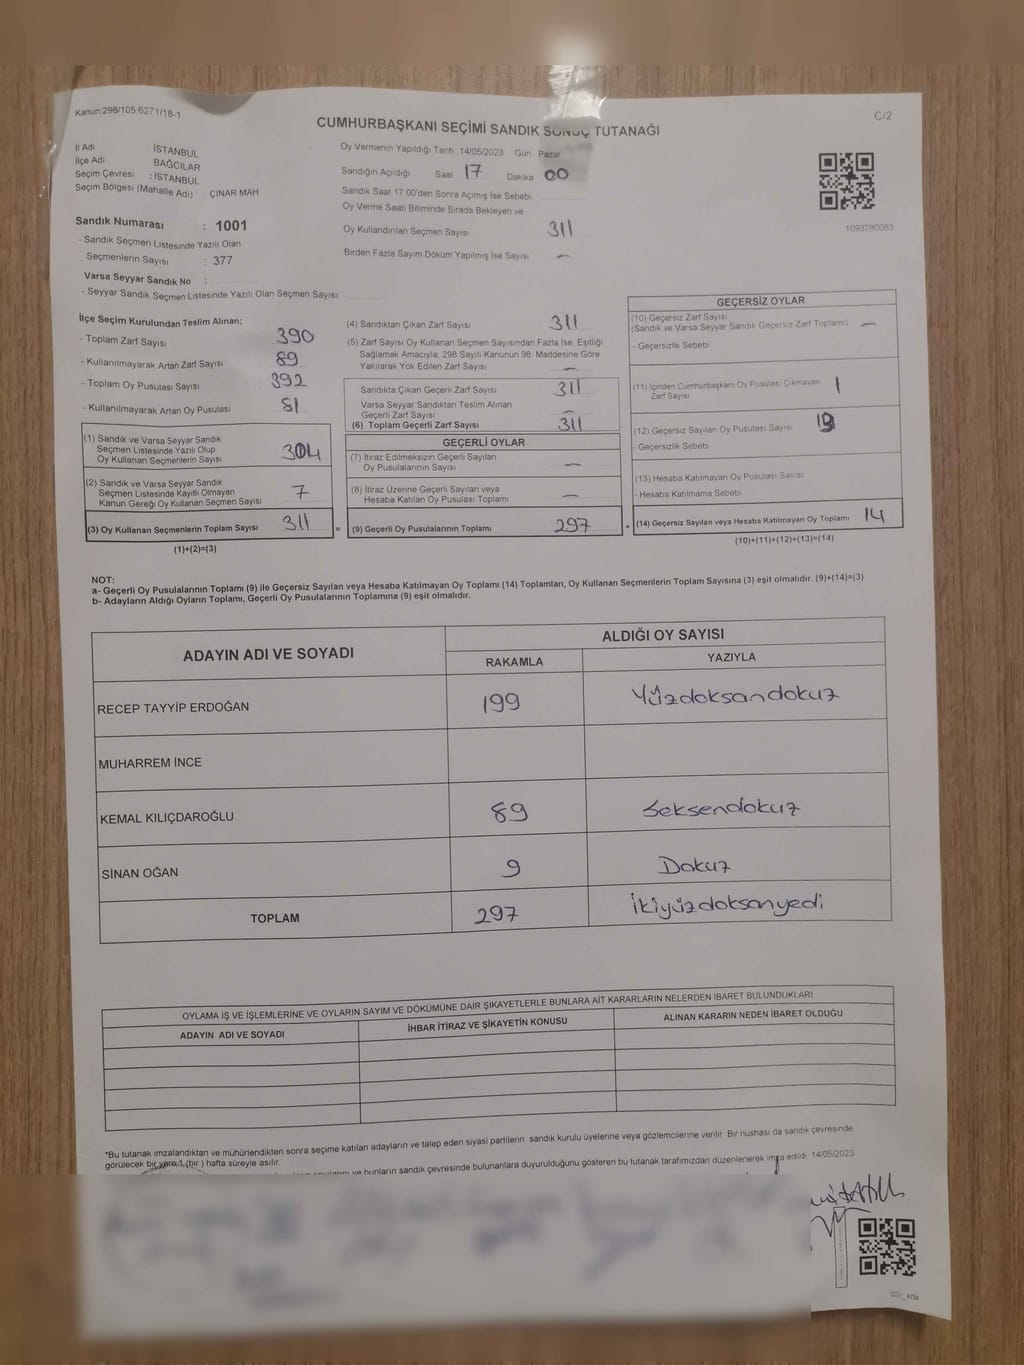 Kanun:298/105:6271/18-1
C/2
CUMHURBAŞKANI SEÇİMİ SANDIK SONUÇ TUTANAĞI
İl Adı İSTANBUL
İlçe Adı BAĞCILAR
Seçim Çevresi : İSTANBUL
Seçim Bölgesi (Mahalle Adı) ÇINAR MAH
Oy Vermenin Yapıldığı Tarih :14/05/2023 Gün Pazar
Sandığın Açıldığı Saat 17 Dakika 00
Sandık Saat 17 00'den Sonra Açımış İse Sebebi
Oy Verme Saati Bitiminde Sırada Bekleyen ve
Oy Kullandırılan Seçmen Sayısı 311
Birden Fazla Sayım Döküm Yapılmış İse Sayısı —
1093780083
Sandık Numarası : 1001
- Sandık Seçmen Listesinde Yazılı Olan
Seçmenlerin Sayısı : 377
Varsa Seyyar Sandık No :
- Seyyar Sandık Seçmen Listesinde Yazılı Olan Seçmen Sayısı:
İlçe Seçim Kurulundan Teslim Alınan:
- Toplam Zarf Sayısı 390
- Kullanılmayarak Artan Zarf Sayısı 89
- Toplam Oy Pusulası Sayısı 392
- Kullanılmayarak Artan Oy Pusulası 81
(1) Sandık ve Varsa Seyyar Sandık
Seçmen Listesinde Yazılı Olup
Oy Kullanan Seçmenlerin Sayısı 304
(2) Sandık ve Varsa Seyyar Sandık
Seçmen Listesinde Kayıtlı Olmayan
Kanun Gereği Oy Kullanan Seçmen Sayısı 7
(3) Oy Kullanan Seçmenlerin Toplam Sayısı 311 =
(1)+(2)=(3)
(4) Sandıktan Çıkan Zarf Sayısı 311
(5) Zarf Sayısı Oy Kullanan Seçmen Sayısından Fazla İse, Eşitliği
Sağlamak Amacıyla, 298 Sayılı Kanunun 98. Maddesine Göre
Yakılarak Yok Edilen Zarf Sayısı —
Sandıkta Çıkan Geçerli Zarf Sayısı 311
Varsa Seyyar Sandıktan Teslim Alınan
Geçerli Zarf Sayısı —
(6) Toplam Geçerli Zarf Sayısı 311
GEÇERLİ OYLAR
(7) İtiraz Edilmeksizin Geçerli Sayılan
Oy Pusulalarının Sayısı —
(8) İtiraz Üzerine Geçerli Sayılan veya
Hesaba Katılan Oy Pusulası Toplamı —
(9) Geçerli Oy Pusulalarının Toplamı 297 +
GEÇERSİZ OYLAR
(10) Geçersiz Zarf Sayısı
(Sandık ve Varsa Seyyar Sandık Geçersiz Zarf Toplamı) —
- Geçersizlik Sebebi
(11) İçinden Cumhurbaşkanı Oy Pusulası Çıkmayan
Zarf Sayısı 1
(12) Geçersiz Sayılan Oy Pusulası Sayısı
- Geçersizlik Sebebi
(13) Hesaba Katılmayan Oy Pusulası Sayısı
- Hesaba Katılmama Sebebi
(14) Geçersiz Sayılan veya Hesaba Katılmayan Oy Toplamı 14
(10)+(11)+(12)+(13)=(14)
NOT:
a- Geçerli Oy Pusulalarının Toplamı (9) ile Geçersiz Sayılan veya Hesaba Katılmayan Oy Toplamı (14) Toplamları, Oy Kullanan Seçmenlerin Toplam Sayısına (3) eşit olmalıdır. (9)+(14)=(3)
b- Adayların Aldığı Oyların Toplamı, Geçerli Oy Pusulalarının Toplamına (9) eşit olmalıdır.
ADAYIN ADI VE SOYADI
ALDIĞI OY SAYISI
RAKAMLA YAZIYLA
RECEP TAYYİP ERDOĞAN 199 Yüzdoksandokuz
MUHARREM İNCE
KEMAL KILIÇDAROĞLU 89 Seksendokuz
SİNAN OĞAN 9 Dokuz
TOPLAM 297 İkiyüzdoksanyedi
OYLAMA İŞ VE İŞLEMLERİNE VE OYLARIN SAYIM VE DÖKÜMÜNE DAİR ŞİKAYETLERLE BUNLARA AİT KARARLARIN NELERDEN İBARET BULUNDUKLARI
ADAYIN ADI VE SOYADI İHBAR İTİRAZ VE ŞİKAYETİN KONUSU ALINAN KARARIN NEDEN İBARET OLDUĞU
*Bu tutanak imzalandıktan ve mühürlendikten sonra seçime katılan adayların ve talep eden siyasi partilerin sandık kurulu üyelerine veya gözlemcilerine verilir. Bir nüshası da sandık çevresinde
görülecek bir yere 1 (bir) hafta süreyle asılır.
ve bunların sandık çevresinde bulunanlara duyurulduğunu gösteren bu tutanak tarafımızdan düzenlenerek imza edildi. 14/05/2023